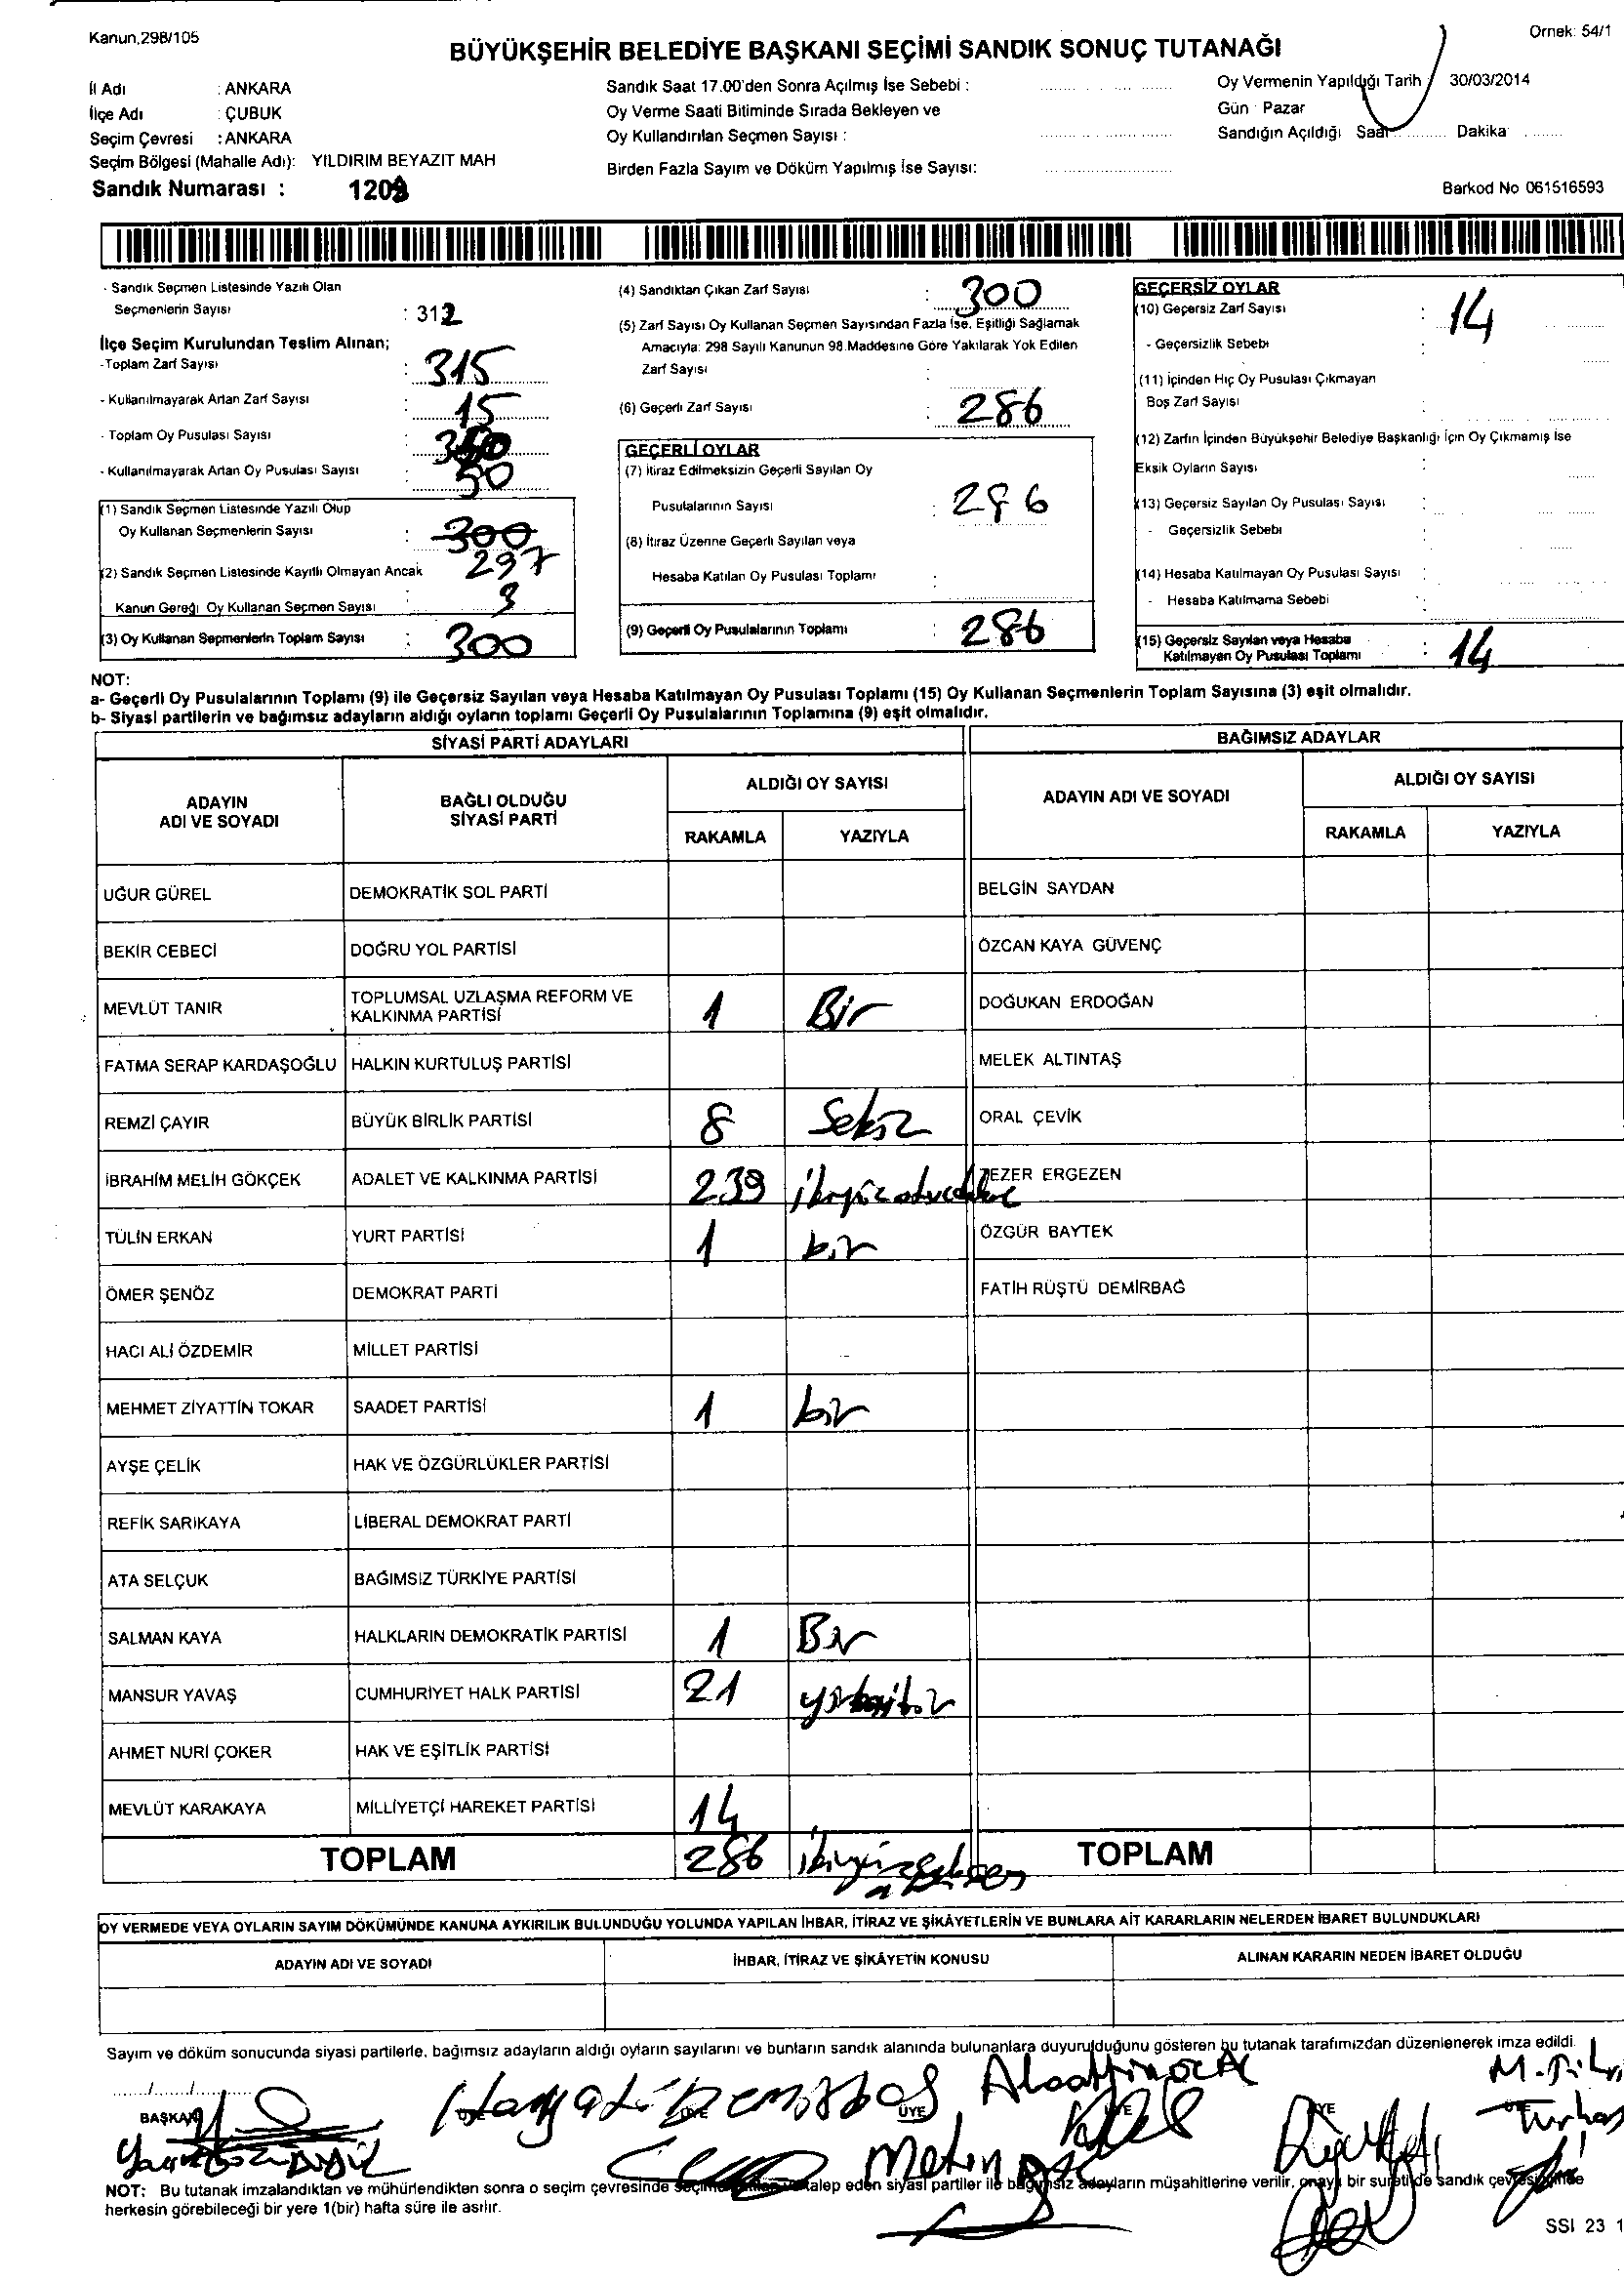 Kanun,298/105
Örnek: 54/1
BÜYÜKŞEHİR BELEDİYE BAŞKANI SEÇİMİ SANDIK SONUÇ TUTANAĞI
İl Adı : ANKARA
İlçe Adı : ÇUBUK
Seçim Çevresi : ANKARA
Seçim Bölgesi (Mahalle Adı): YILDIRIM BEYAZIT MAH
Sandık Numarası :
Sandık Saat 17.00'den Sonra Açılmış İse Sebebi :
Oy Verme Saati Bitiminde Sırada Bekleyen ve
Oy Kullandırılan Seçmen Sayısı :
Birden Fazla Sayım ve Döküm Yapılmış İse Sayısı:
Oy Vermenin Yapıldığı Tarih 30/03/2014
Gün : Pazar
Sandığın Açıldığı Saat Dakika
Barkod No 061516593
- Sandık Seçmen Listesinde Yazılı Olan
Seçmenlerin Sayısı : 312
İlçe Seçim Kurulundan Teslim Alınan;
-Toplam Zarf Sayısı : 315
- Kullanılmayarak Artan Zarf Sayısı : 15
- Toplam Oy Pusulası Sayısı :
- Kullanılmayarak Artan Oy Pusulası Sayısı : 50
(1) Sandık Seçmen Listesinde Yazılı Olup
Oy Kullanan Seçmenlerin Sayısı : 300 297
(2) Sandık Seçmen Listesinde Kayıtlı Olmayan Ancak
Kanun Gereği Oy Kullanan Seçmen Sayısı : 3
(3) Oy Kullanan Seçmenlerin Toplam Sayısı : 300
(4) Sandıktan Çıkan Zarf Sayısı : 300
(5) Zarf Sayısı Oy Kullanan Seçmen Sayısından Fazla İse, Eşitliği Sağlamak
Amacıyla: 298 Sayılı Kanunun 98.Maddesine Göre Yakılarak Yok Edilen
Zarf Sayısı :
(6) Geçerli Zarf Sayısı : 286
GEÇERLİ OYLAR
(7) İtiraz Edilmeksizin Geçerli Sayılan Oy
Pusulalarının Sayısı : 286
(8) İtiraz Üzerine Geçerli Sayılan veya
Hesaba Katılan Oy Pusulası Toplamı :
(9) Geçerli Oy Pusulalarının Toplamı : 286
GEÇERSİZ OYLAR
(10) Geçersiz Zarf Sayısı : 14
- Geçersizlik Sebebi :
(11) İçinden Hiç Oy Pusulası Çıkmayan
Boş Zarf Sayısı :
(12) Zarfın İçinden Büyükşehir Belediye Başkanlığı İçin Oy Çıkmamış İse
Eksik Oyların Sayısı :
(13) Geçersiz Sayılan Oy Pusulası Sayısı :
- Geçersizlik Sebebi
(14) Hesaba Katılmayan Oy Pusulası Sayısı :
- Hesaba Katılmama Sebebi :
(15) Geçersiz Sayılan veya Hesaba
Katılmayan Oy Pusulası Toplamı : 14
NOT:
a- Geçerli Oy Pusulalarının Toplamı (9) ile Geçersiz Sayılan veya Hesaba Katılmayan Oy Pusulası Toplamı (15) Oy Kullanan Seçmenlerin Toplam Sayısına (3) eşit olmalıdır.
b- Siyasi partilerin ve bağımsız adayların aldığı oyların toplamı Geçerli Oy Pusulalarının Toplamına (9) eşit olmalıdır.
SİYASİ PARTİ ADAYLARI BAĞIMSIZ ADAYLAR
ADAYIN ADI VE SOYADI BAĞLI OLDUĞU SİYASİ PARTİ ALDIĞI OY SAYISI ADAYIN ADI VE SOYADI ALDIĞI OY SAYISI
RAKAMLA YAZIYLA RAKAMLA YAZIYLA
UĞUR GÜREL DEMOKRATİK SOL PARTİ BELGİN SAYDAN
BEKİR CEBECİ DOĞRU YOL PARTİSİ ÖZCAN KAYA GÜVENÇ
MEVLÜT TANIR TOPLUMSAL UZLAŞMA REFORM VE KALKINMA PARTİSİ 1 Bir DOĞUKAN ERDOĞAN
FATMA SERAP KARDAŞOĞLU HALKIN KURTULUŞ PARTİSİ MELEK ALTINTAŞ
REMZİ ÇAYIR BÜYÜK BİRLİK PARTİSİ 8 Sekiz ORAL ÇEVİK
İBRAHİM MELİH GÖKÇEK ADALET VE KALKINMA PARTİSİ 239 EZER ERGEZEN
TÜLİN ERKAN YURT PARTİSİ 1 bir ÖZGÜR BAYTEK
ÖMER ŞENÖZ DEMOKRAT PARTİ FATİH RÜŞTÜ DEMİRBAĞ
HACI ALİ ÖZDEMİR MİLLET PARTİSİ
MEHMET ZİYATTİN TOKAR SAADET PARTİSİ 1 bir
AYŞE ÇELİK HAK VE ÖZGÜRLÜKLER PARTİSİ
REFİK SARIKAYA LİBERAL DEMOKRAT PARTİ
ATA SELÇUK BAĞIMSIZ TÜRKİYE PARTİSİ
SALMAN KAYA HALKLARIN DEMOKRATİK PARTİSİ 1 Bir
MANSUR YAVAŞ CUMHURİYET HALK PARTİSİ 21
AHMET NURİ ÇOKER HAK VE EŞİTLİK PARTİSİ
MEVLÜT KARAKAYA MİLLİYETÇİ HAREKET PARTİSİ 14
TOPLAM 286 TOPLAM
OY VERMEDE VEYA OYLARIN SAYIM DÖKÜMÜNDE KANUNA AYKIRILIK BULUNDUĞU YOLUNDA YAPILAN İHBAR, İTİRAZ VE ŞİKÂYETLERİN VE BUNLARA AİT KARARLARIN NELERDEN İBARET BULUNDUKLARI
ADAYIN ADI VE SOYADI İHBAR, İTİRAZ VE ŞİKÂYETİN KONUSU ALINAN KARARIN NEDEN İBARET OLDUĞU
Sayım ve döküm sonucunda siyasi partilerle, bağımsız adayların aldığı oyların sayılarını ve bunların sandık alanında bulunanlara duyurulduğunu gösteren bu tutanak tarafımızdan düzenlenerek imza edildi.
BAŞKAN ÜYE ÜYE ÜYE ÜYE ÜYE
Metin
NOT: Bu tutanak imzalandıktan ve mühürlendikten sonra o seçim çevresinde talep eden siyasi partiler ile bağımsız adayların müşahitlerine verilir, onaylı bir sureti de sandık çevresinde
herkesin görebileceği bir yere 1(bir) hafta süre ile asılır.
SSI 23 1